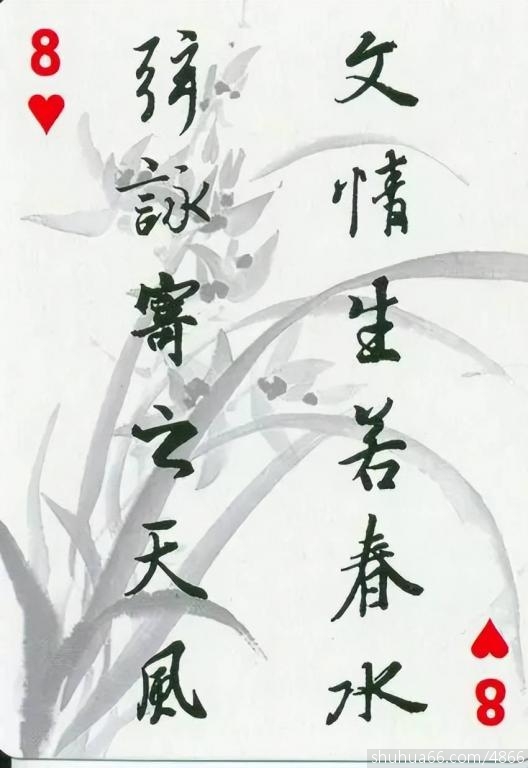 8
文情生若春水
弦詠寄之天風
8
shuhua66.com/4866